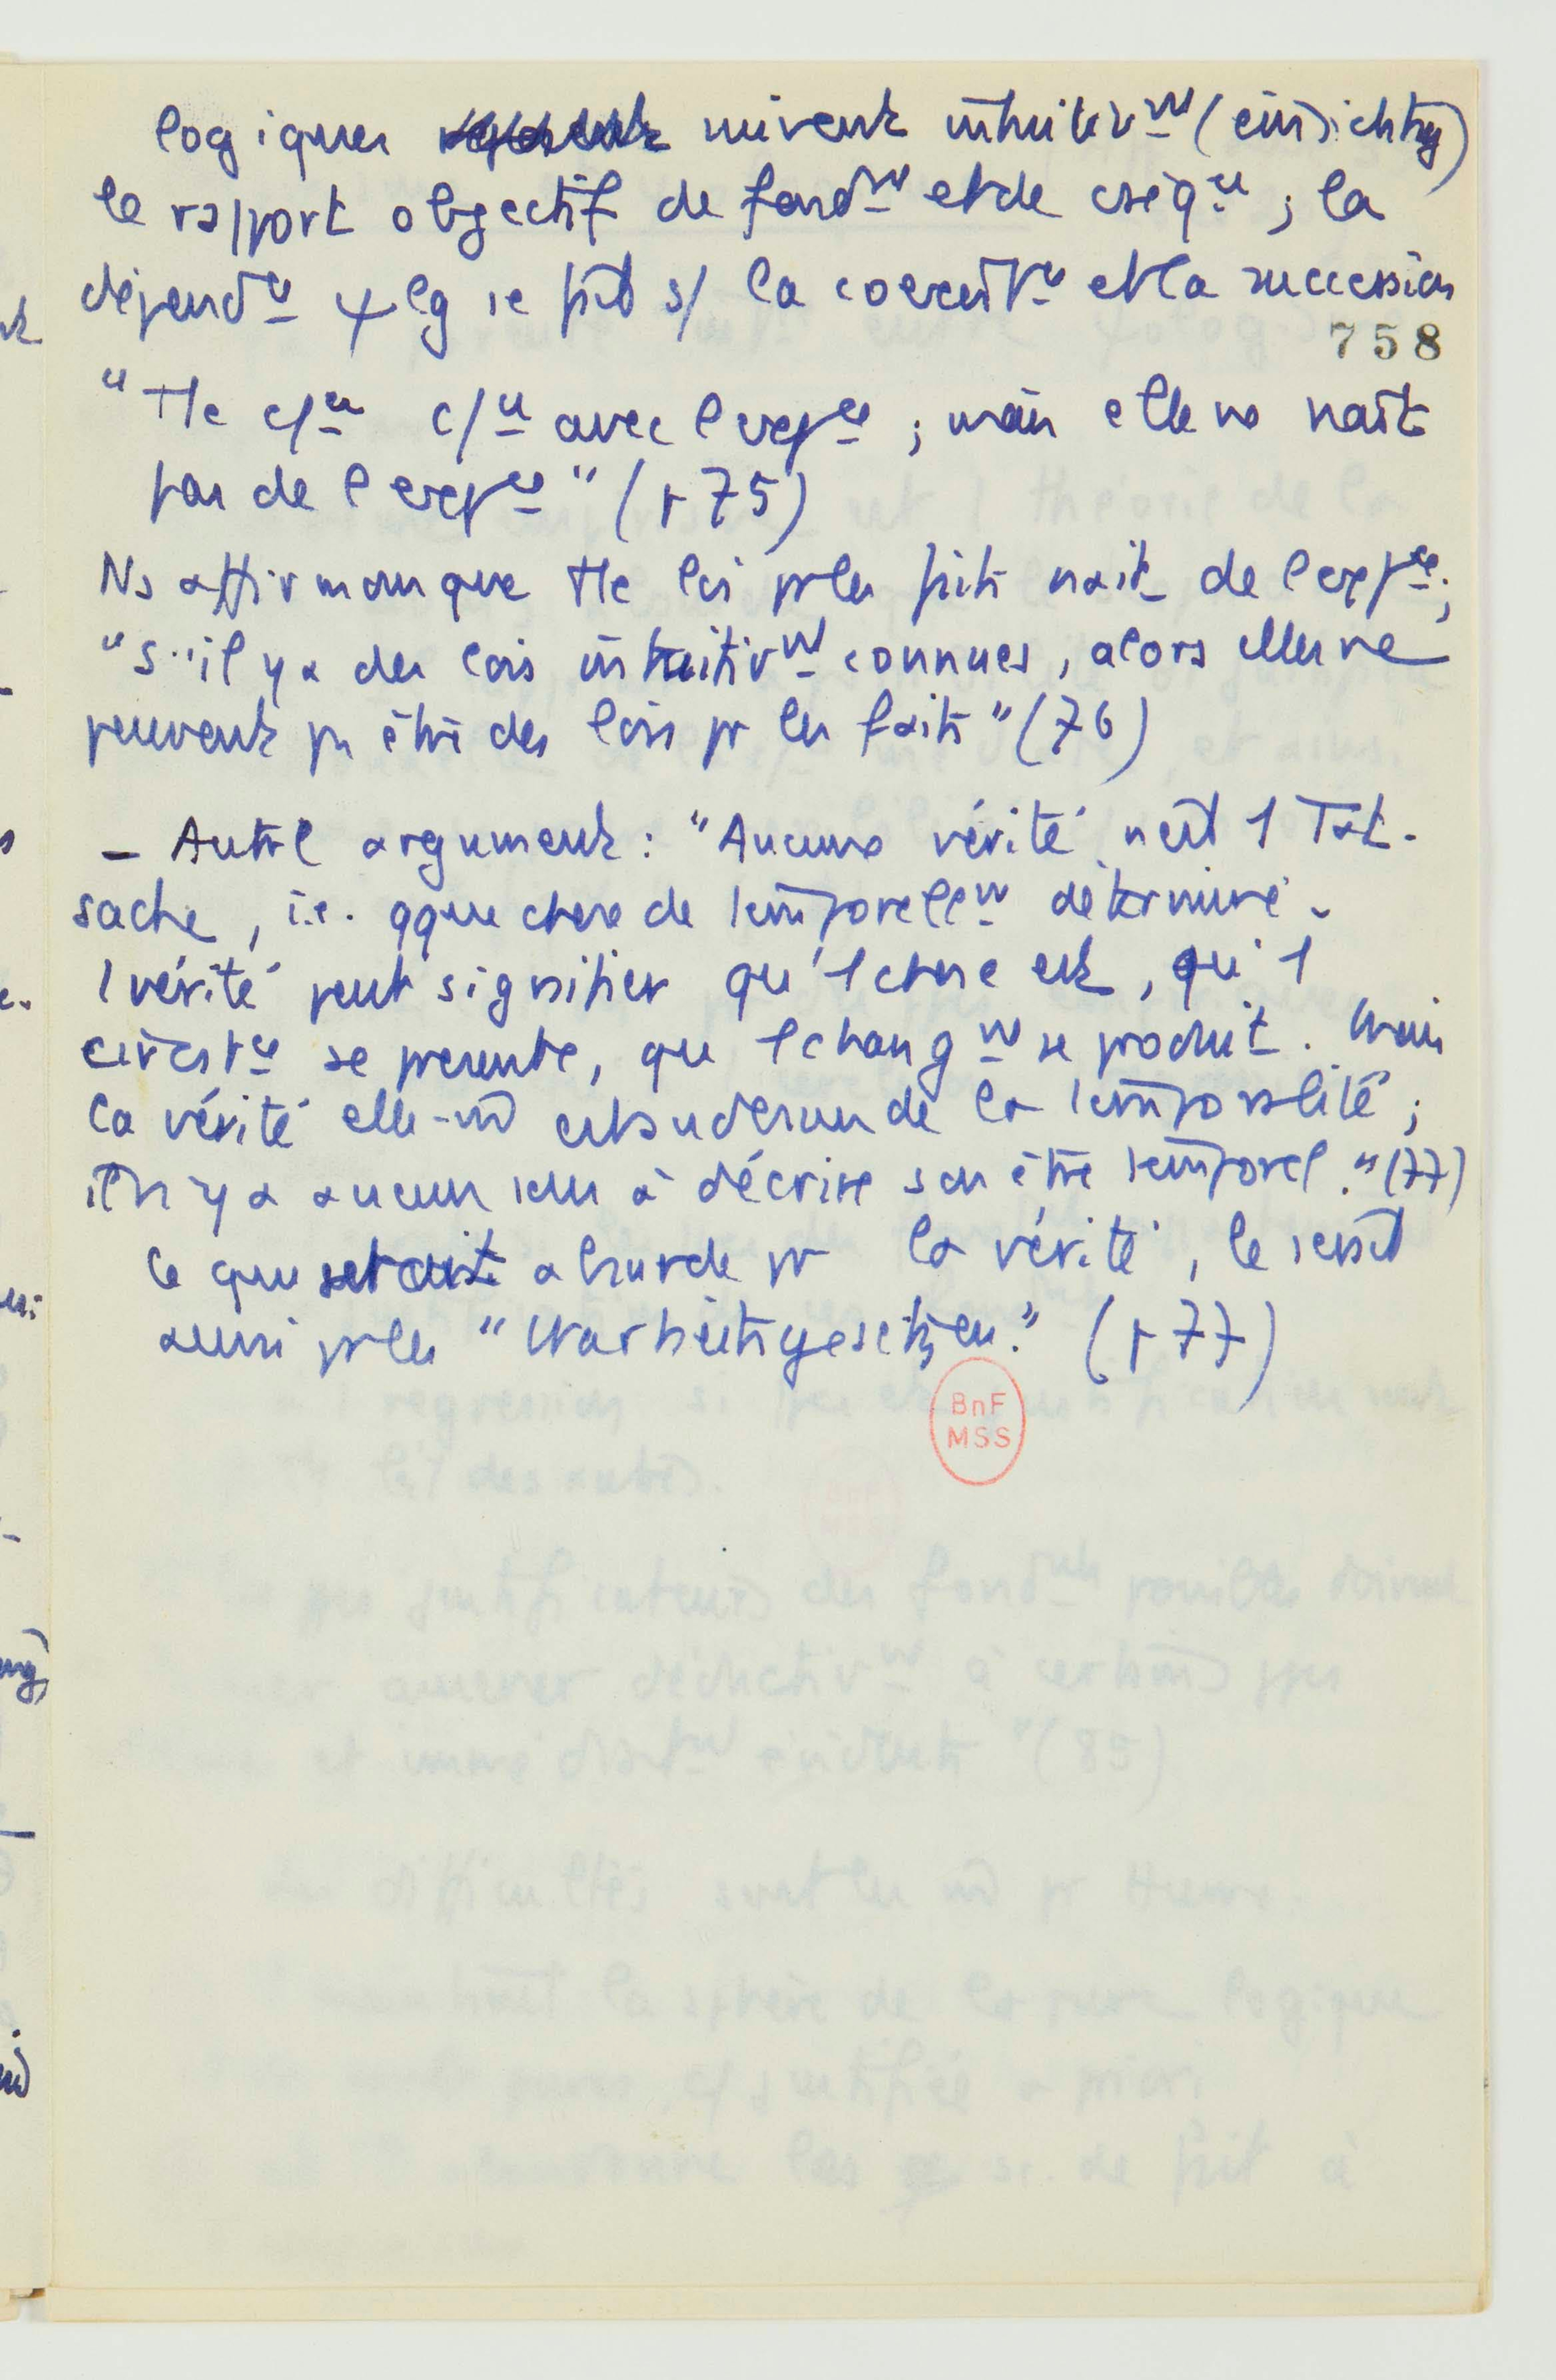 logiques suivent intuitivᵗ (einsichtig)
le rapport objectif de fondᵗ et de cséqᶜᵉ ; la
dépendᶜᵉ ψlg se fait s/ la coexistᶜᵉ et la succession
758
"Tte c/ᶜᵉ c/ᶜᵉ avec l'expᶜᵉ ; mais elle ne naît
pas de l'expᶜᵉ" (p 75)
Ns affirmons que tte loi pr les faits naît de l'expᶜᵉ ;
"S'il y a des lois intuitivᵗ connues, alors elles ne
peuvent ps être des lois pr les faits" (76)
– Autre argument : "Aucune vérité n'est 1 Tat-
sache, i.e. qque chose de temporellᵗ déterminé.
1 vérité peut signifier qu'1 chose est, qu'1
circstᶜᵉ se présente, que 1 changᵗ se produit. Mais
la vérité elle-m̄ est au dessus de la temporalité ;
il n'y a aucun sens à décrire son être temporel." (77)
Ce qui serait absurde pr la vérité, le serait
aussi pr les "Warheitsgesetzen." (p 77)
BnF
MSS